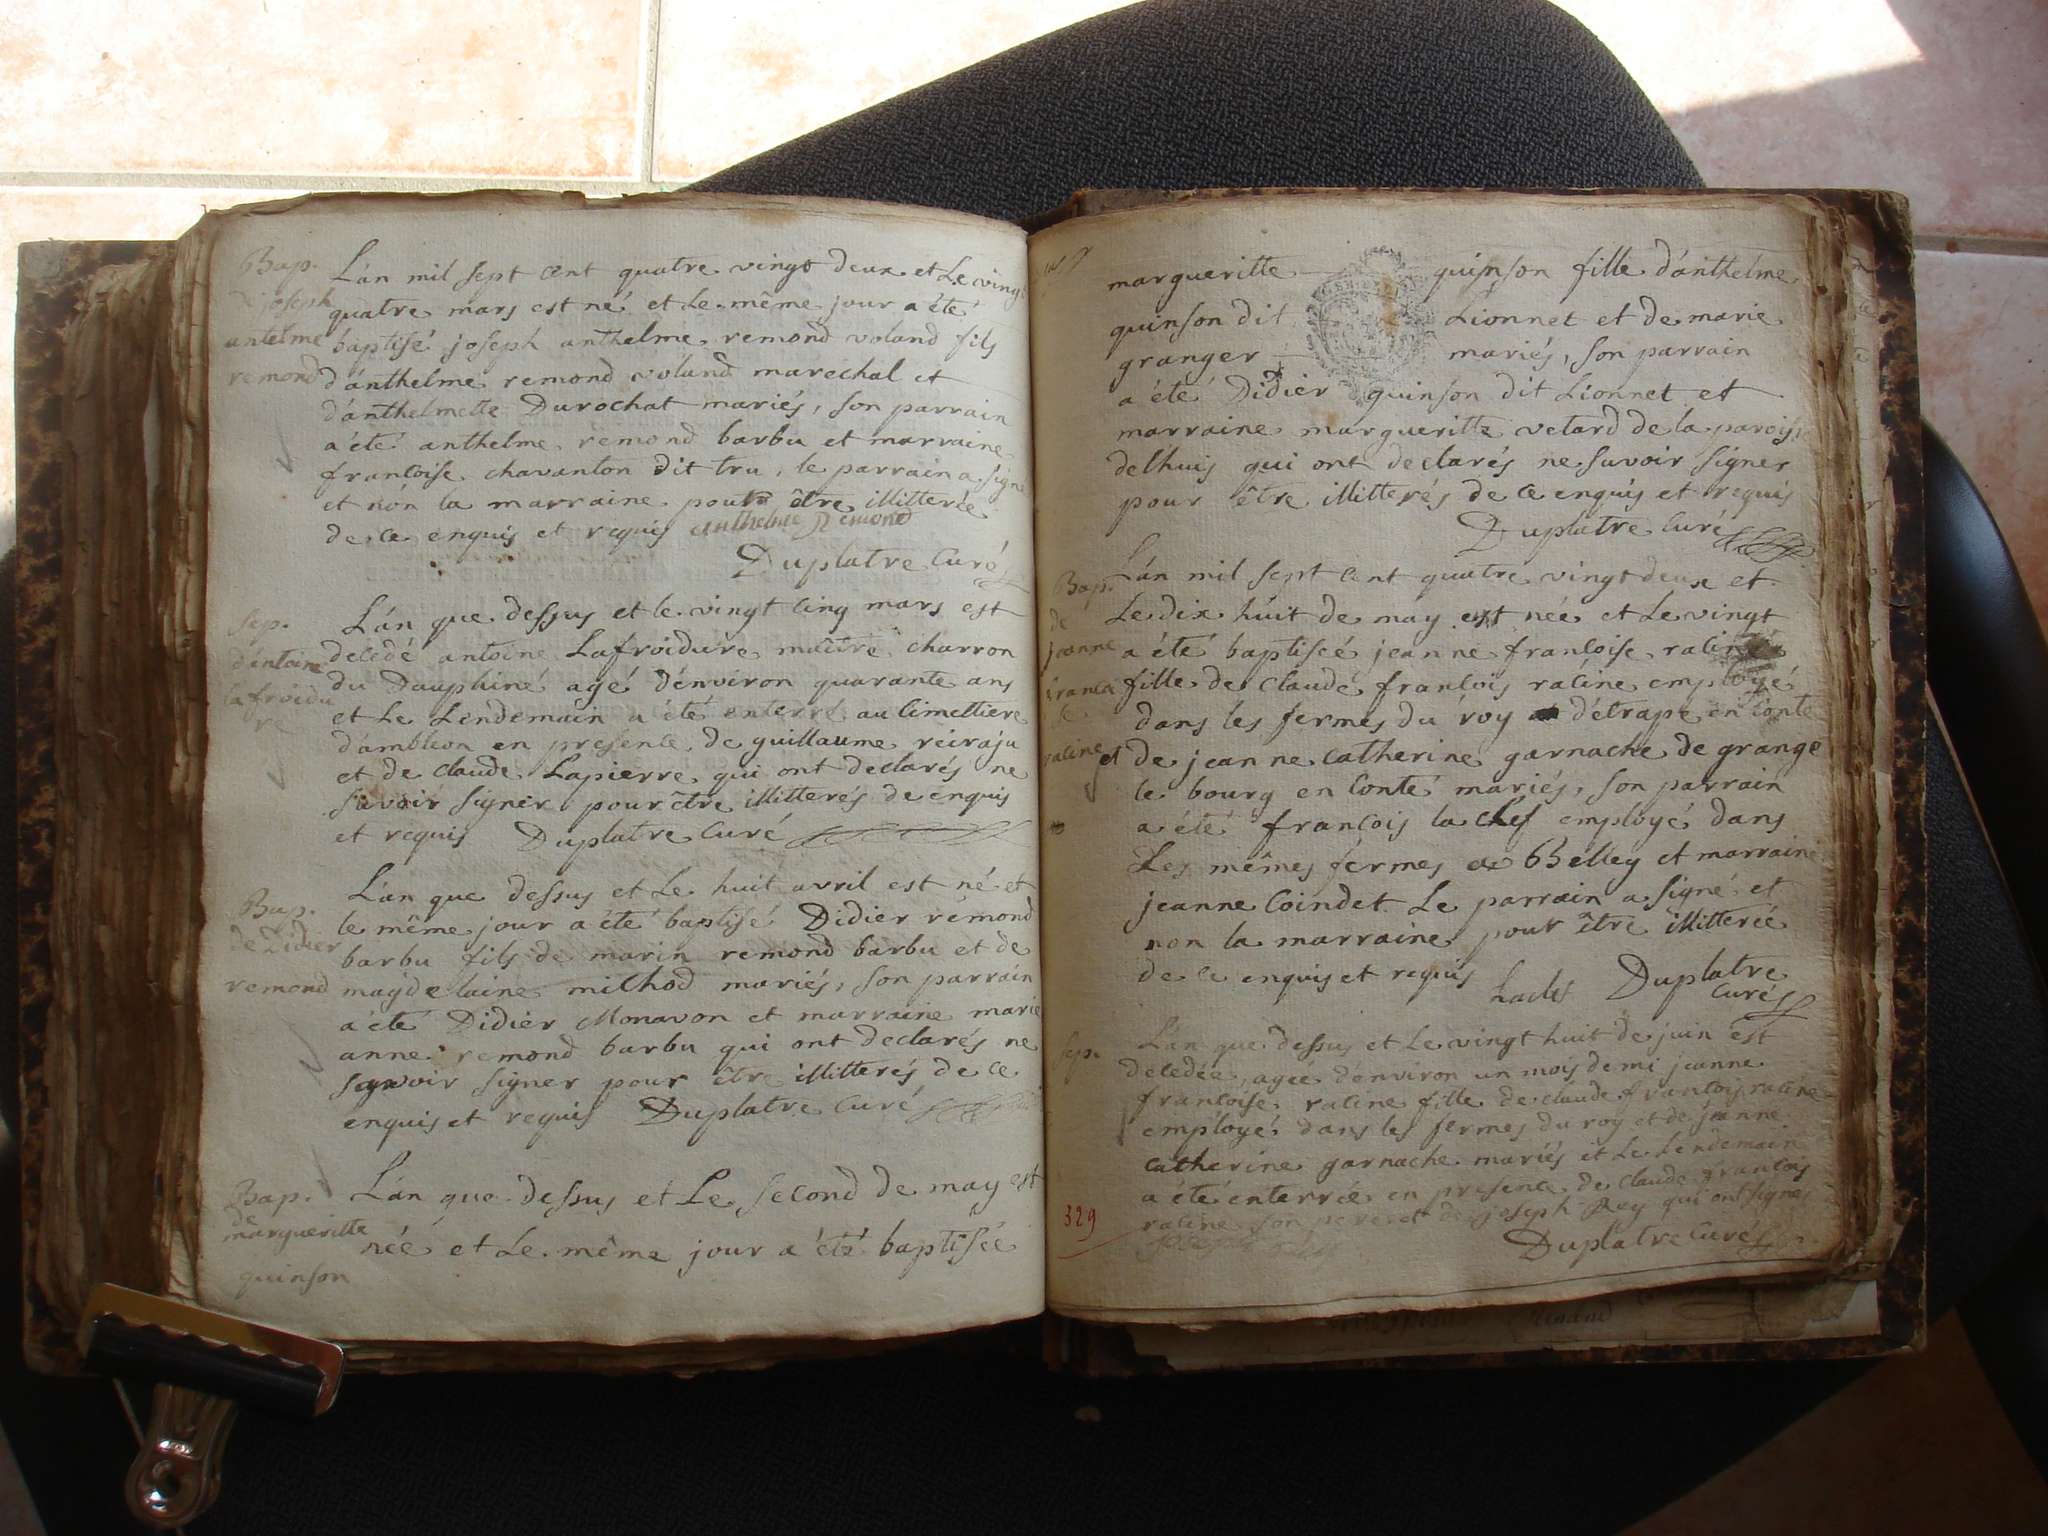 Bap.
de joseph
antelme
remond
L'an mil sept cent quatre vingt deux et Le vingt
quatre mars est né et Le même jour a été
baptisé joseph anthelme remond voland fils
d'anthelme remond voland marechal et
d'anthelmette Durochat mariés, son parrain
a été anthelme remond barbu et marraine
francoise chavanton dit tru, le parrain a signé
et non la marraine pour être illitterée
de ce enquis et requis anthelme Remond
Duplatre Curé
Sep.
d'antoine
lafroidu
re
L'an que dessus et le vingt cinq mars est
decedé antoine Lafroidure maître charron
du Dauphiné agé d'environ quarante ans
et Le Lendemain a été enterré au cimettiere
d'ambleon en presence de guillaume reiraju
et de claude Lapierre qui ont declarés ne
savoir signer pour être illitterés de enquis
et requis Duplatre Curé
Bap.
de Didier
remond
L'an que dessus et Le huit avril est né et
le même jour a été baptisé Didier remond
barbu fils de marin remond barbu et de
magdelaine milhod mariés, son parrain
a été Didier Monavon et marraine marie
anne remond barbu qui ont declarés ne
savoir signer pour être illitterés de ce
enquis et requis Duplatre Curé
Bap.
de
margueritte
quinson
L'an que dessus et Le second de may est
née et Le même jour a été baptisée
margueritte quinson fille d'anthelme
quinson dit Lionnet et de marie
granger mariés, son parrain
a été Didier quinson dit Lionnet et
marraine margueritte vetard de la paroisse
delhuis qui ont declarés ne savoir signer
pour être illitterés de ce enquis et requis
Duplatre Curé
Bap.
de
jeanne
franco
ise
racine
L'an mil sept cent quatre vingt deux et
Le dix huit de may est née et Le vingt
a été baptisée jeanne francoise racine
fille de claude francois racine employé
dans les fermes du roy d'étrape en conté
et de jeanne catherine garnache de grange
le bourg en Conté mariés, son parrain
a été francois la clef employé dans
Les mêmes fermes a Belley et marraine
jeanne Coindet Le parrain a signé et
non la marraine pour être illitterée
de ce enquis et requis Duplatre
Curé
Sep.
L'an que dessus et Le vingt huit de juin est
decedée, agée d'environ un mois demi jeanne
francoise racine fille de claude francois racine
employé dans les fermes du roy et de jeanne
catherine garnache mariés et Le Lendemain
a été enterrée en presence de claude francois
racine son pere et de joseph Rey qui ont signés
Duplatre Curé
329